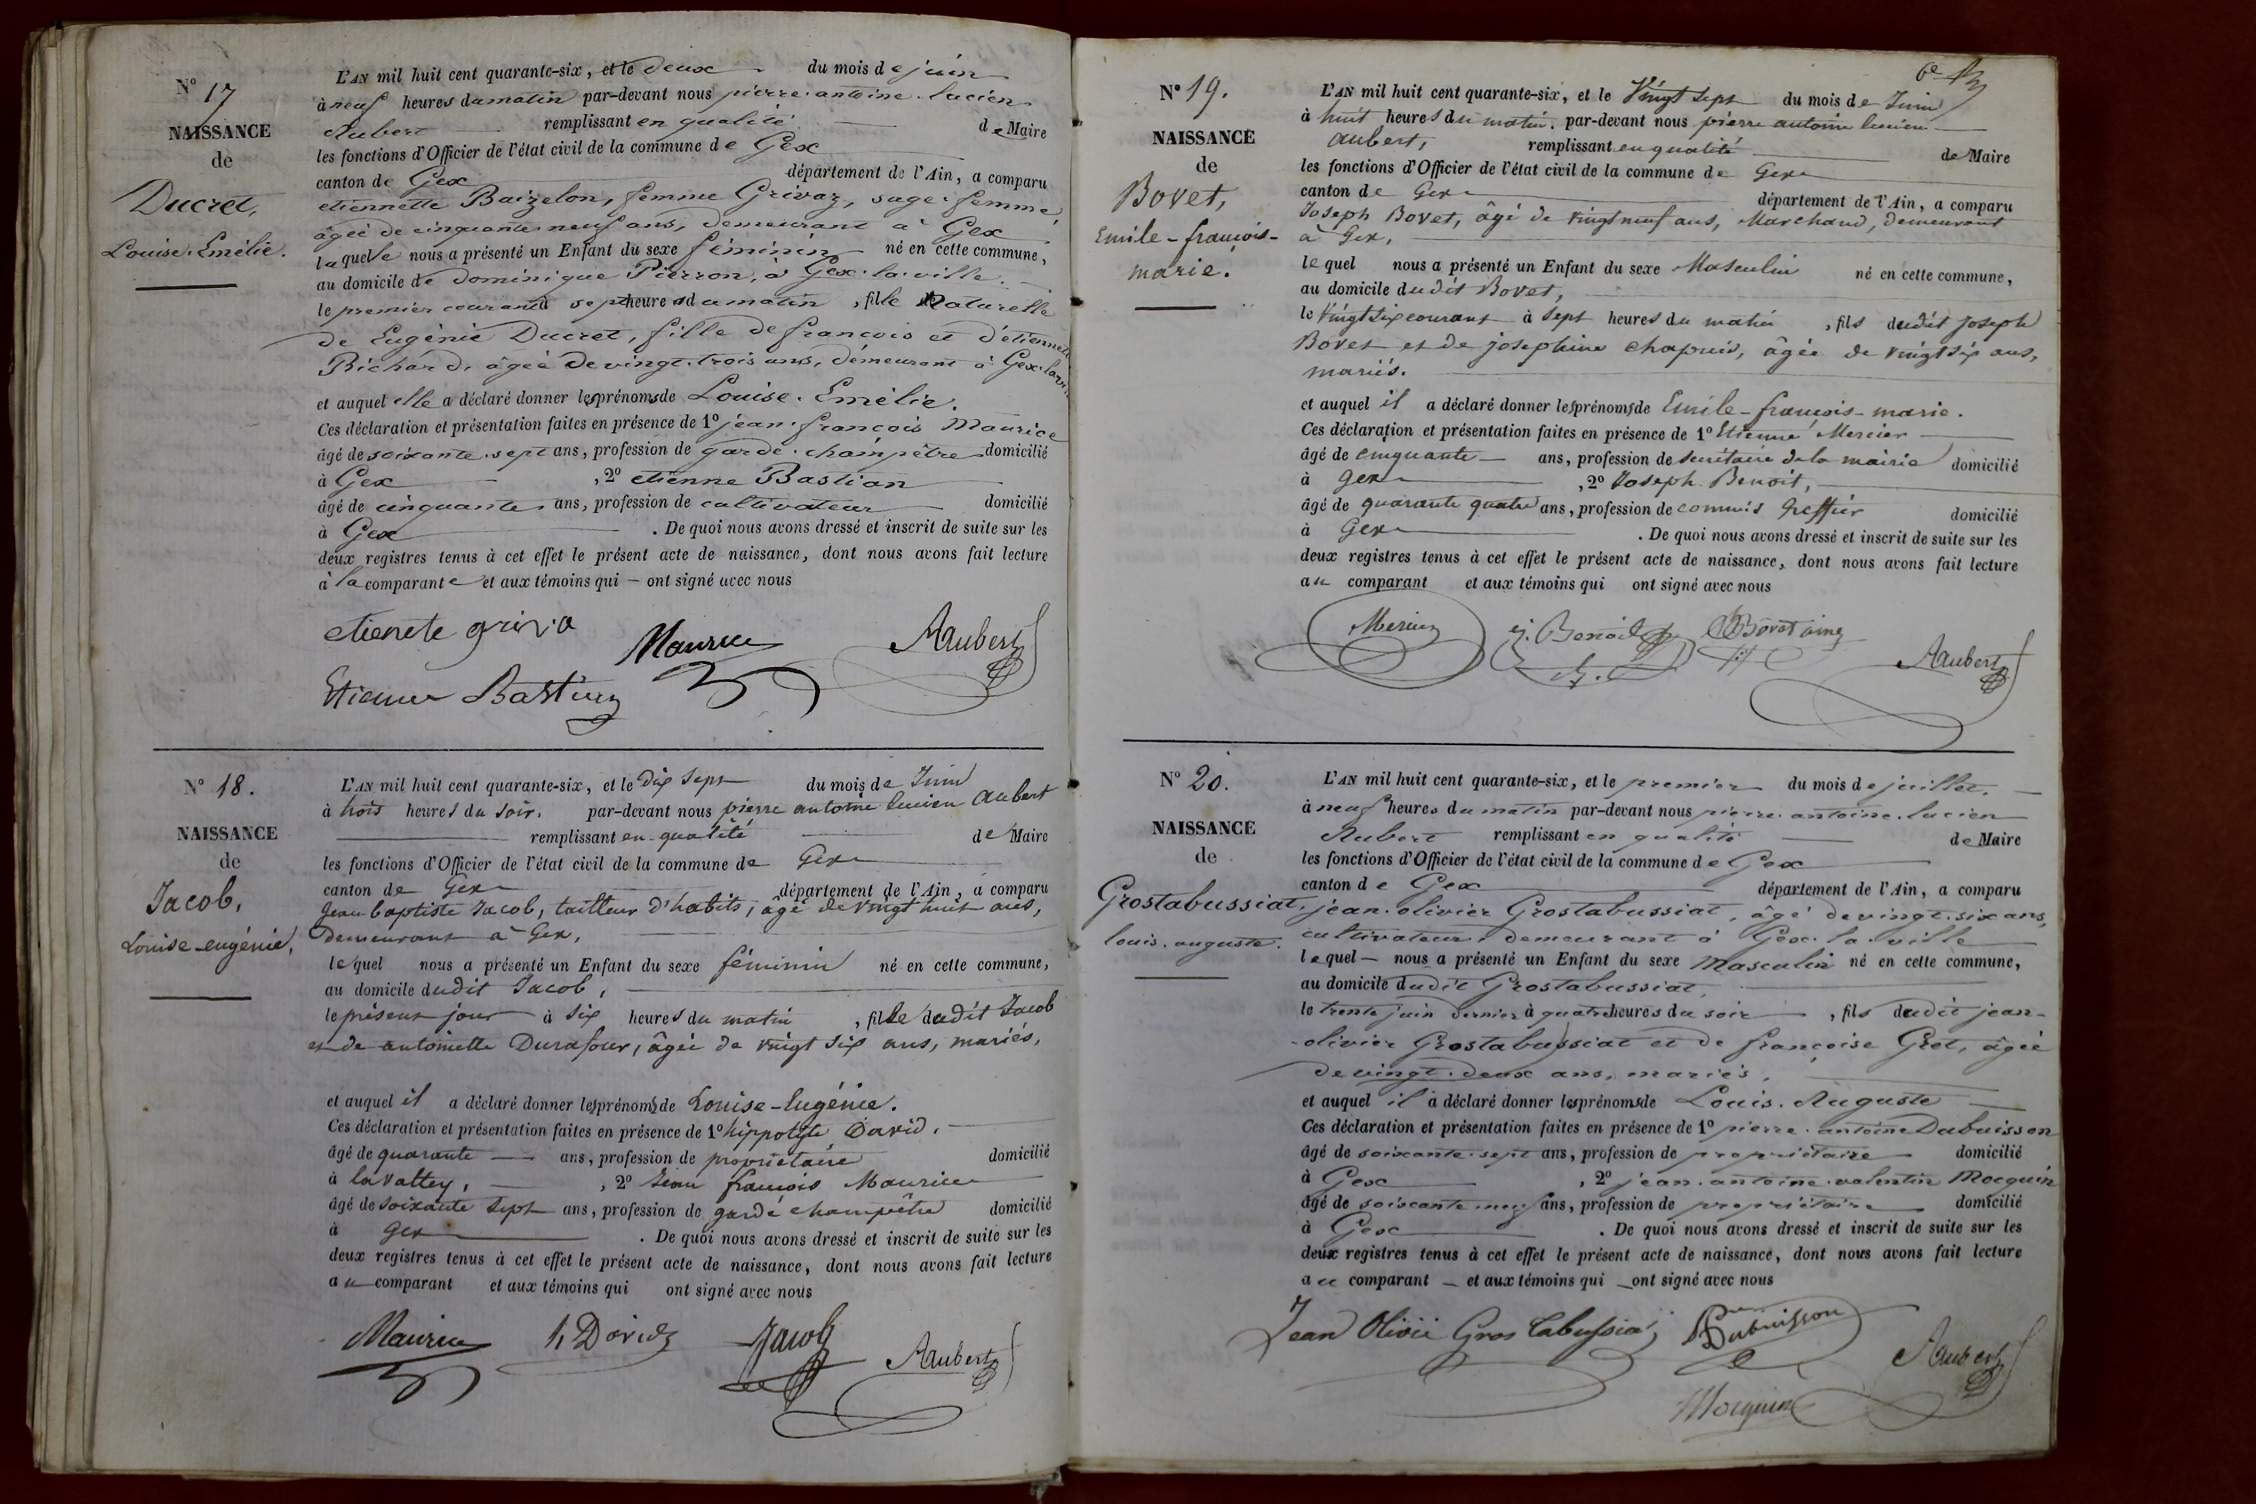 N° 17
NAISSANCE
de
Ducret,
Louise. Emélie.
L'AN mil huit cent quarante-six, et le deux du mois de juin
à neuf heures du matin par-devant nous pierre. antoine. lucien
Aubert remplissant en qualité de Maire
les fonctions d'Officier de l'état civil de la commune de Gex
canton de Gex département de l'Ain, a comparu
etiennette Baizelon, femme Grivaz, sage. femme,
âgée de cinquante neuf ans, demeurant à Gex
laquelle nous a présenté un Enfant du sexe féminin né en cette commune,
au domicile de dominique Pierron, à Gex. la. ville.
le premier courant à sept heures du matin, fille Naturelle
de Eugénie Ducret, fille de françois et d'étiennette
Richard, âgée de vingt. trois ans, demeurant à Gex. la ville
et auquel elle a déclaré donner les prénoms de Louise. Emélie.
Ces déclaration et présentation faites en présence de 1° jean. françois Maurice
âgé de soixante. sept ans, profession de garde. champêtre domicilié
à Gex, 2° etienne Bastian
âgé de cinquante ans, profession de cultivateur domicilié
à Gex. De quoi nous avons dressé et inscrit de suite sur les
deux registres tenus à cet effet le présent acte de naissance, dont nous avons fait lecture
à la comparante et aux témoins qui ont signé avec nous
etienete griva Maurice Aubert
Etienne Bastian
N° 18.
NAISSANCE
de
Jacob,
Louise-eugénie,
L'AN mil huit cent quarante-six, et le Dix Sept du mois de Juin
à trois heures du soir. par-devant nous pierre antoine lucien Aubert
remplissant en qualité de Maire
les fonctions d'Officier de l'état civil de la commune de Gex
canton de Gex département de l'Ain, a comparu
Jean baptiste Jacob, tailleur d'habits, âgé de vingt huit ans,
demeurant à Gex,
lequel nous a présenté un Enfant du sexe féminin né en cette commune,
au domicile dudit Jacob,
le présent jour à Six heures du matin, fille dudit Jacob
et de antoinette Durafour, âgée de vingt six ans, mariés,
et auquel il a déclaré donner les prénoms de Louise-Eugénie.
Ces déclaration et présentation faites en présence de 1° hippolyte David,
âgé de quarante ans, profession de propriétaire domicilié
à lavattey, 2° Jean françois Maurice
âgé de soixante sept ans, profession de garde champêtre domicilié
à Gex. De quoi nous avons dressé et inscrit de suite sur les
deux registres tenus à cet effet le présent acte de naissance, dont nous avons fait lecture
au comparant et aux témoins qui ont signé avec nous
Maurice h David Jacob Aubert
N° 19.
NAISSANCE
de
Bovet,
Emile-françois-
marie.
L'AN mil huit cent quarante-six, et le Vingt Sept du mois de Juin
à huit heures du matin. par-devant nous pierre antoine lucien
Aubert, remplissant en qualité de Maire
les fonctions d'Officier de l'état civil de la commune de Gex
canton de Gex département de l'Ain, a comparu
Joseph Bovet, âgé de vingt neuf ans, Marchand, demeurant
à Gex,
lequel nous a présenté un Enfant du sexe Masculin né en cette commune,
au domicile dudit Bovet,
le Vingt six courant à Sept heures du matin, fils dudit Joseph
Bovet et de josephine chapuis, âgée de vingt six ans,
mariés.
et auquel il a déclaré donner les prénoms de Emile-françois-marie.
Ces déclaration et présentation faites en présence de 1° Etienne Mercier
âgé de cinquante ans, profession de secrétaire de la mairie domicilié
à Gex, 2° Joseph Benoît,
âgé de quarante quatre ans, profession de commis Greffier domicilié
à Gex. De quoi nous avons dressé et inscrit de suite sur les
deux registres tenus à cet effet le présent acte de naissance, dont nous avons fait lecture
au comparant et aux témoins qui ont signé avec nous
Mercier j. Benoit Bovet ainé Aubert
N° 20.
NAISSANCE
de
Grostabussiat,
louis. auguste.
L'AN mil huit cent quarante-six, et le premier du mois de juillet.
à neuf heures du matin par-devant nous pierre. antoine. lucien
Aubert remplissant en qualité de Maire
les fonctions d'Officier de l'état civil de la commune de Gex
canton de Gex département de l'Ain, a comparu
jean. olivier Grostabussiat, âgé de vingt. six ans,
cultivateur, demeurant à Gex. la. ville
lequel nous a présenté un Enfant du sexe Masculin né en cette commune,
au domicile dudit Grostabussiat,
le trente juin dernier à quatre heures du soir, fils dudit jean-
olivier Grostabussiat et de françoise Gret, âgée
de vingt. deux ans, mariés,
et auquel il a déclaré donner les prénoms de Louis. Auguste
Ces déclaration et présentation faites en présence de 1° pierre. antoine Dubuisson
âgé de soixante. sept ans, profession de propriétaire domicilié
à Gex, 2° jean. antoine. valentin Mocquin
âgé de soixante. neuf ans, profession de propriétaire domicilié
à Gex. De quoi nous avons dressé et inscrit de suite sur les
deux registres tenus à cet effet le présent acte de naissance, dont nous avons fait lecture
au comparant et aux témoins qui ont signé avec nous
Jean Olivié Gros tabussiat Dubuisson Aubert
Mocquin